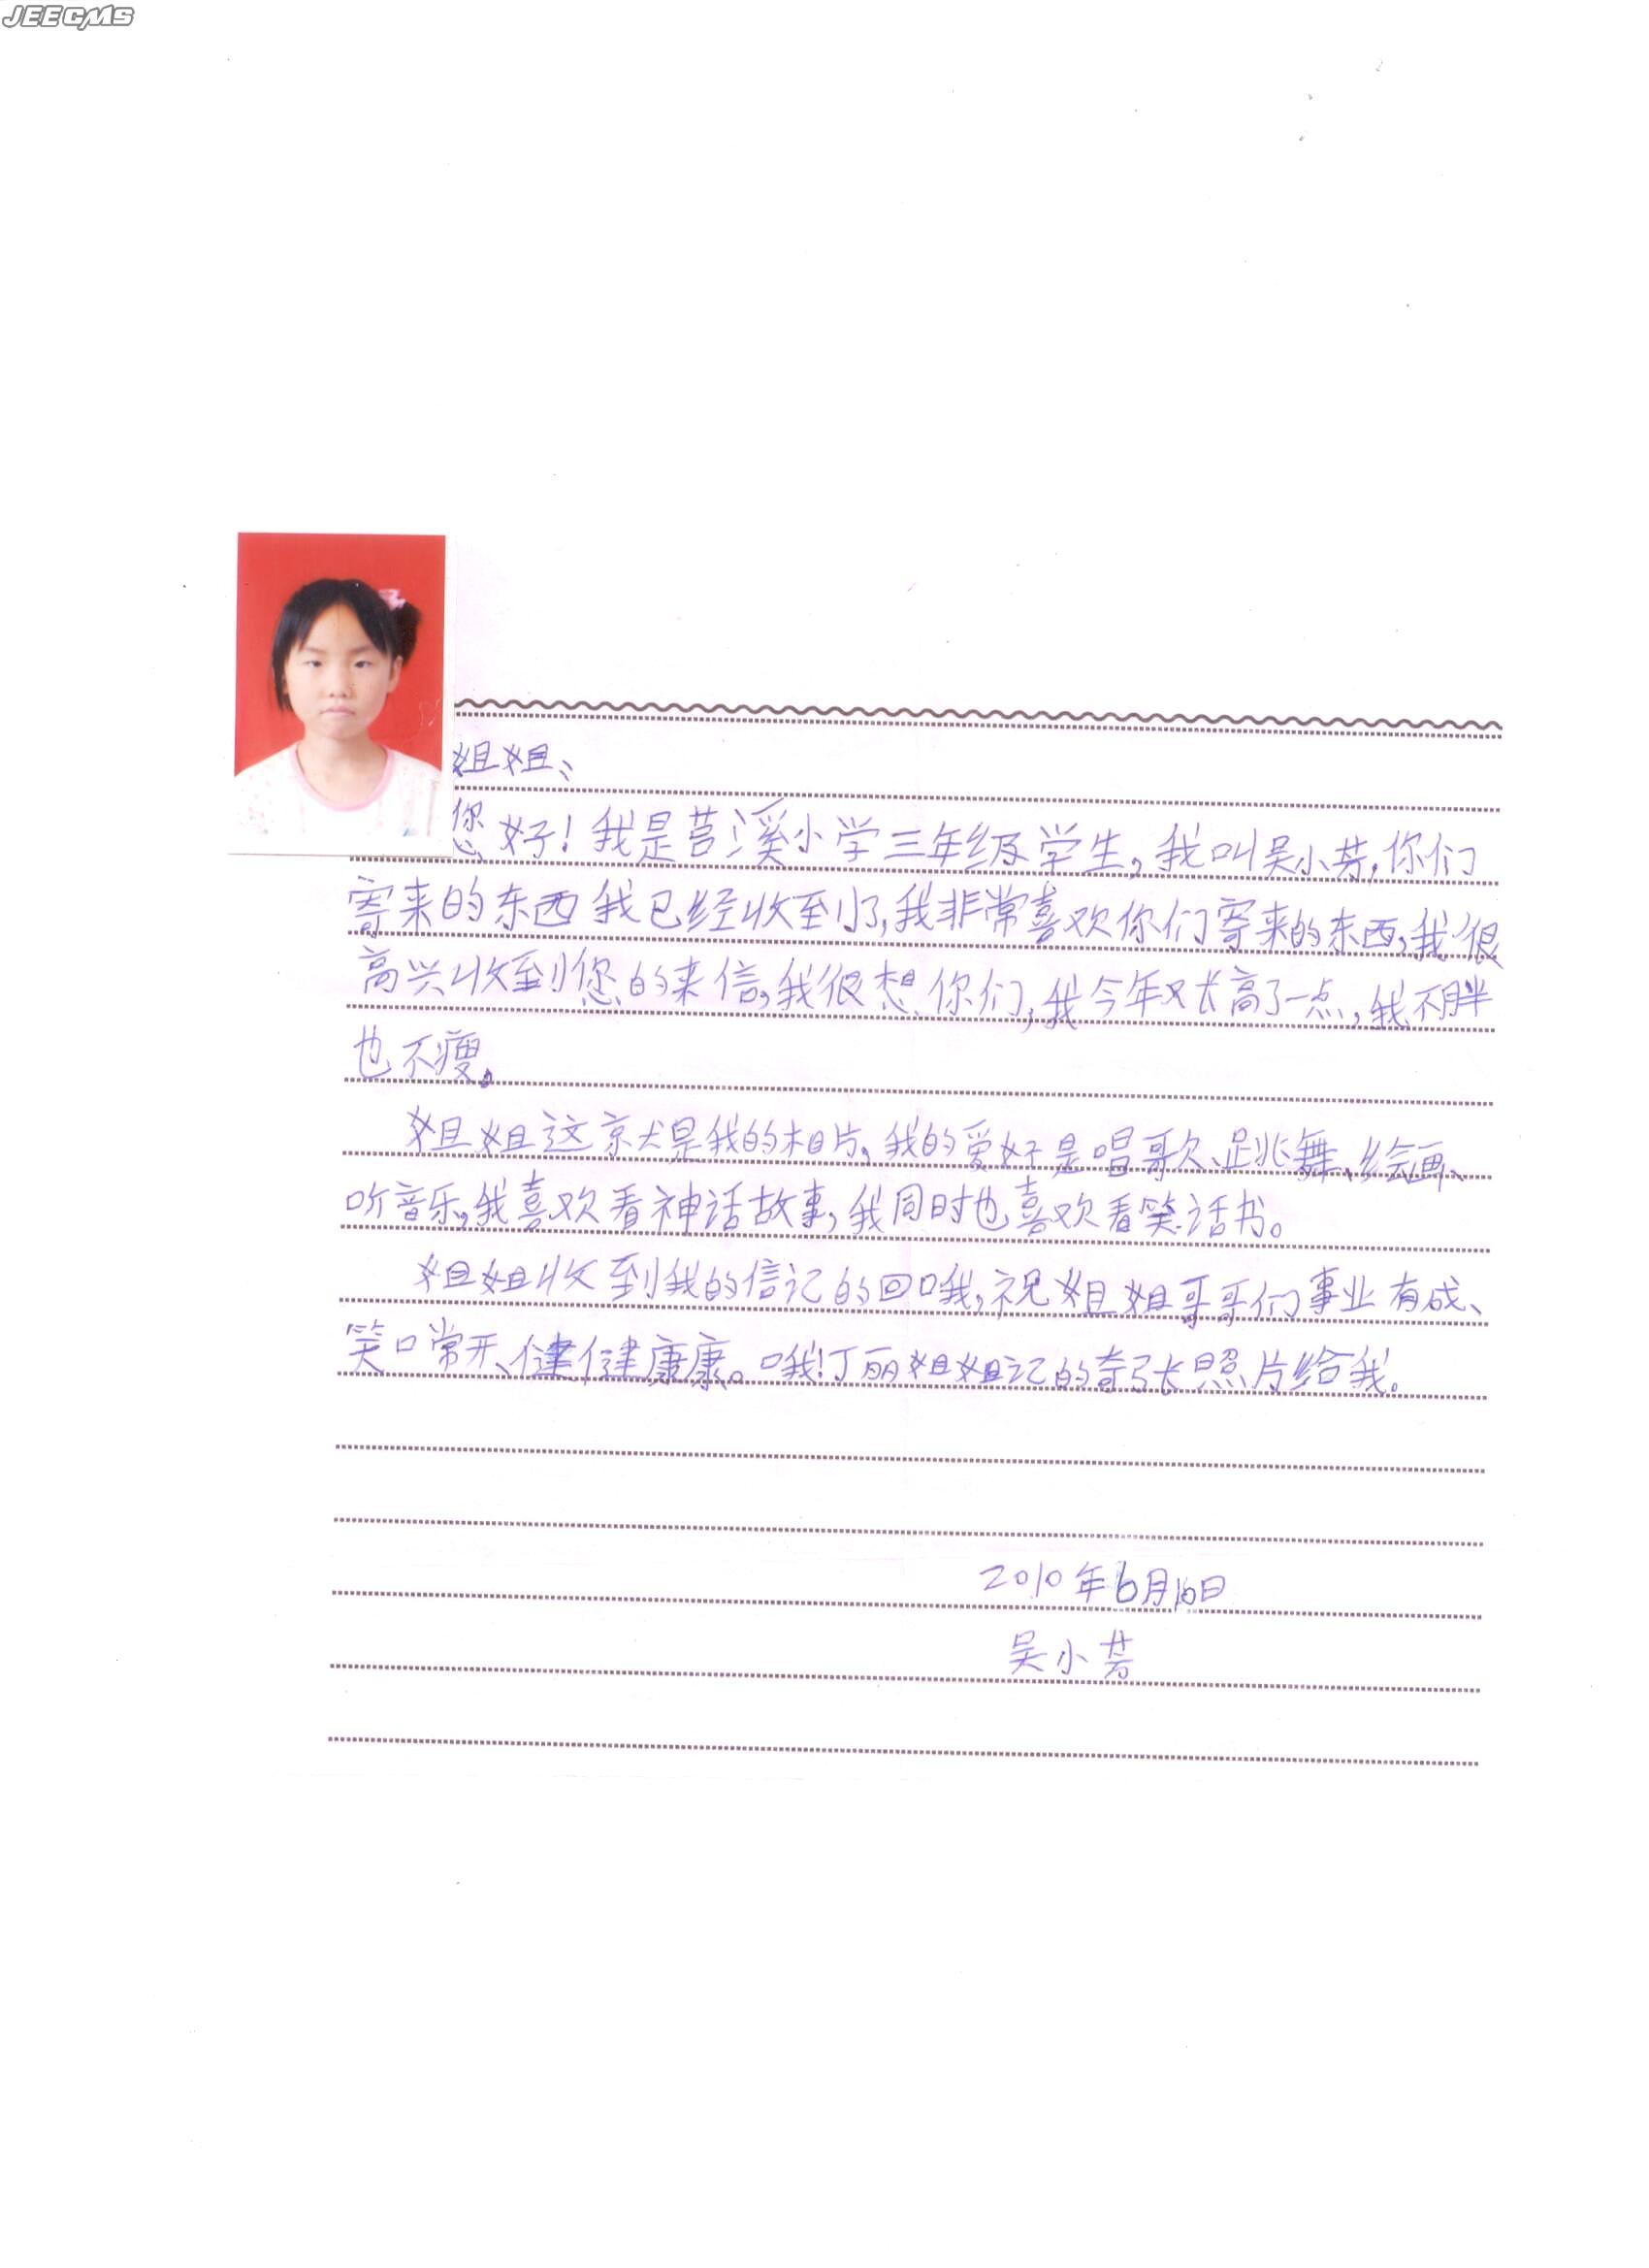 JEECMS
姐姐、
您好!我是莒溪小学三年级学生,我叫吴小芳,你们
寄来的东西我已经收到了,我非常喜欢你们寄来的东西,我很
高兴收到您的来信,我很想你们,我今年又长高了一点,我不胖
也不瘦。
姐姐这京犬是我的相片,我的爱好是唱歌、跳舞、绘画、
听音乐,我喜欢看神话故事,我同时也喜欢看笑话书。
姐姐收到我的信记的回哦,祝姐姐哥哥们事业有成、
笑口常开、健健康康。哦!丁丽姐姐记的寄张照片给我。
2010年6月10日
吴小芳